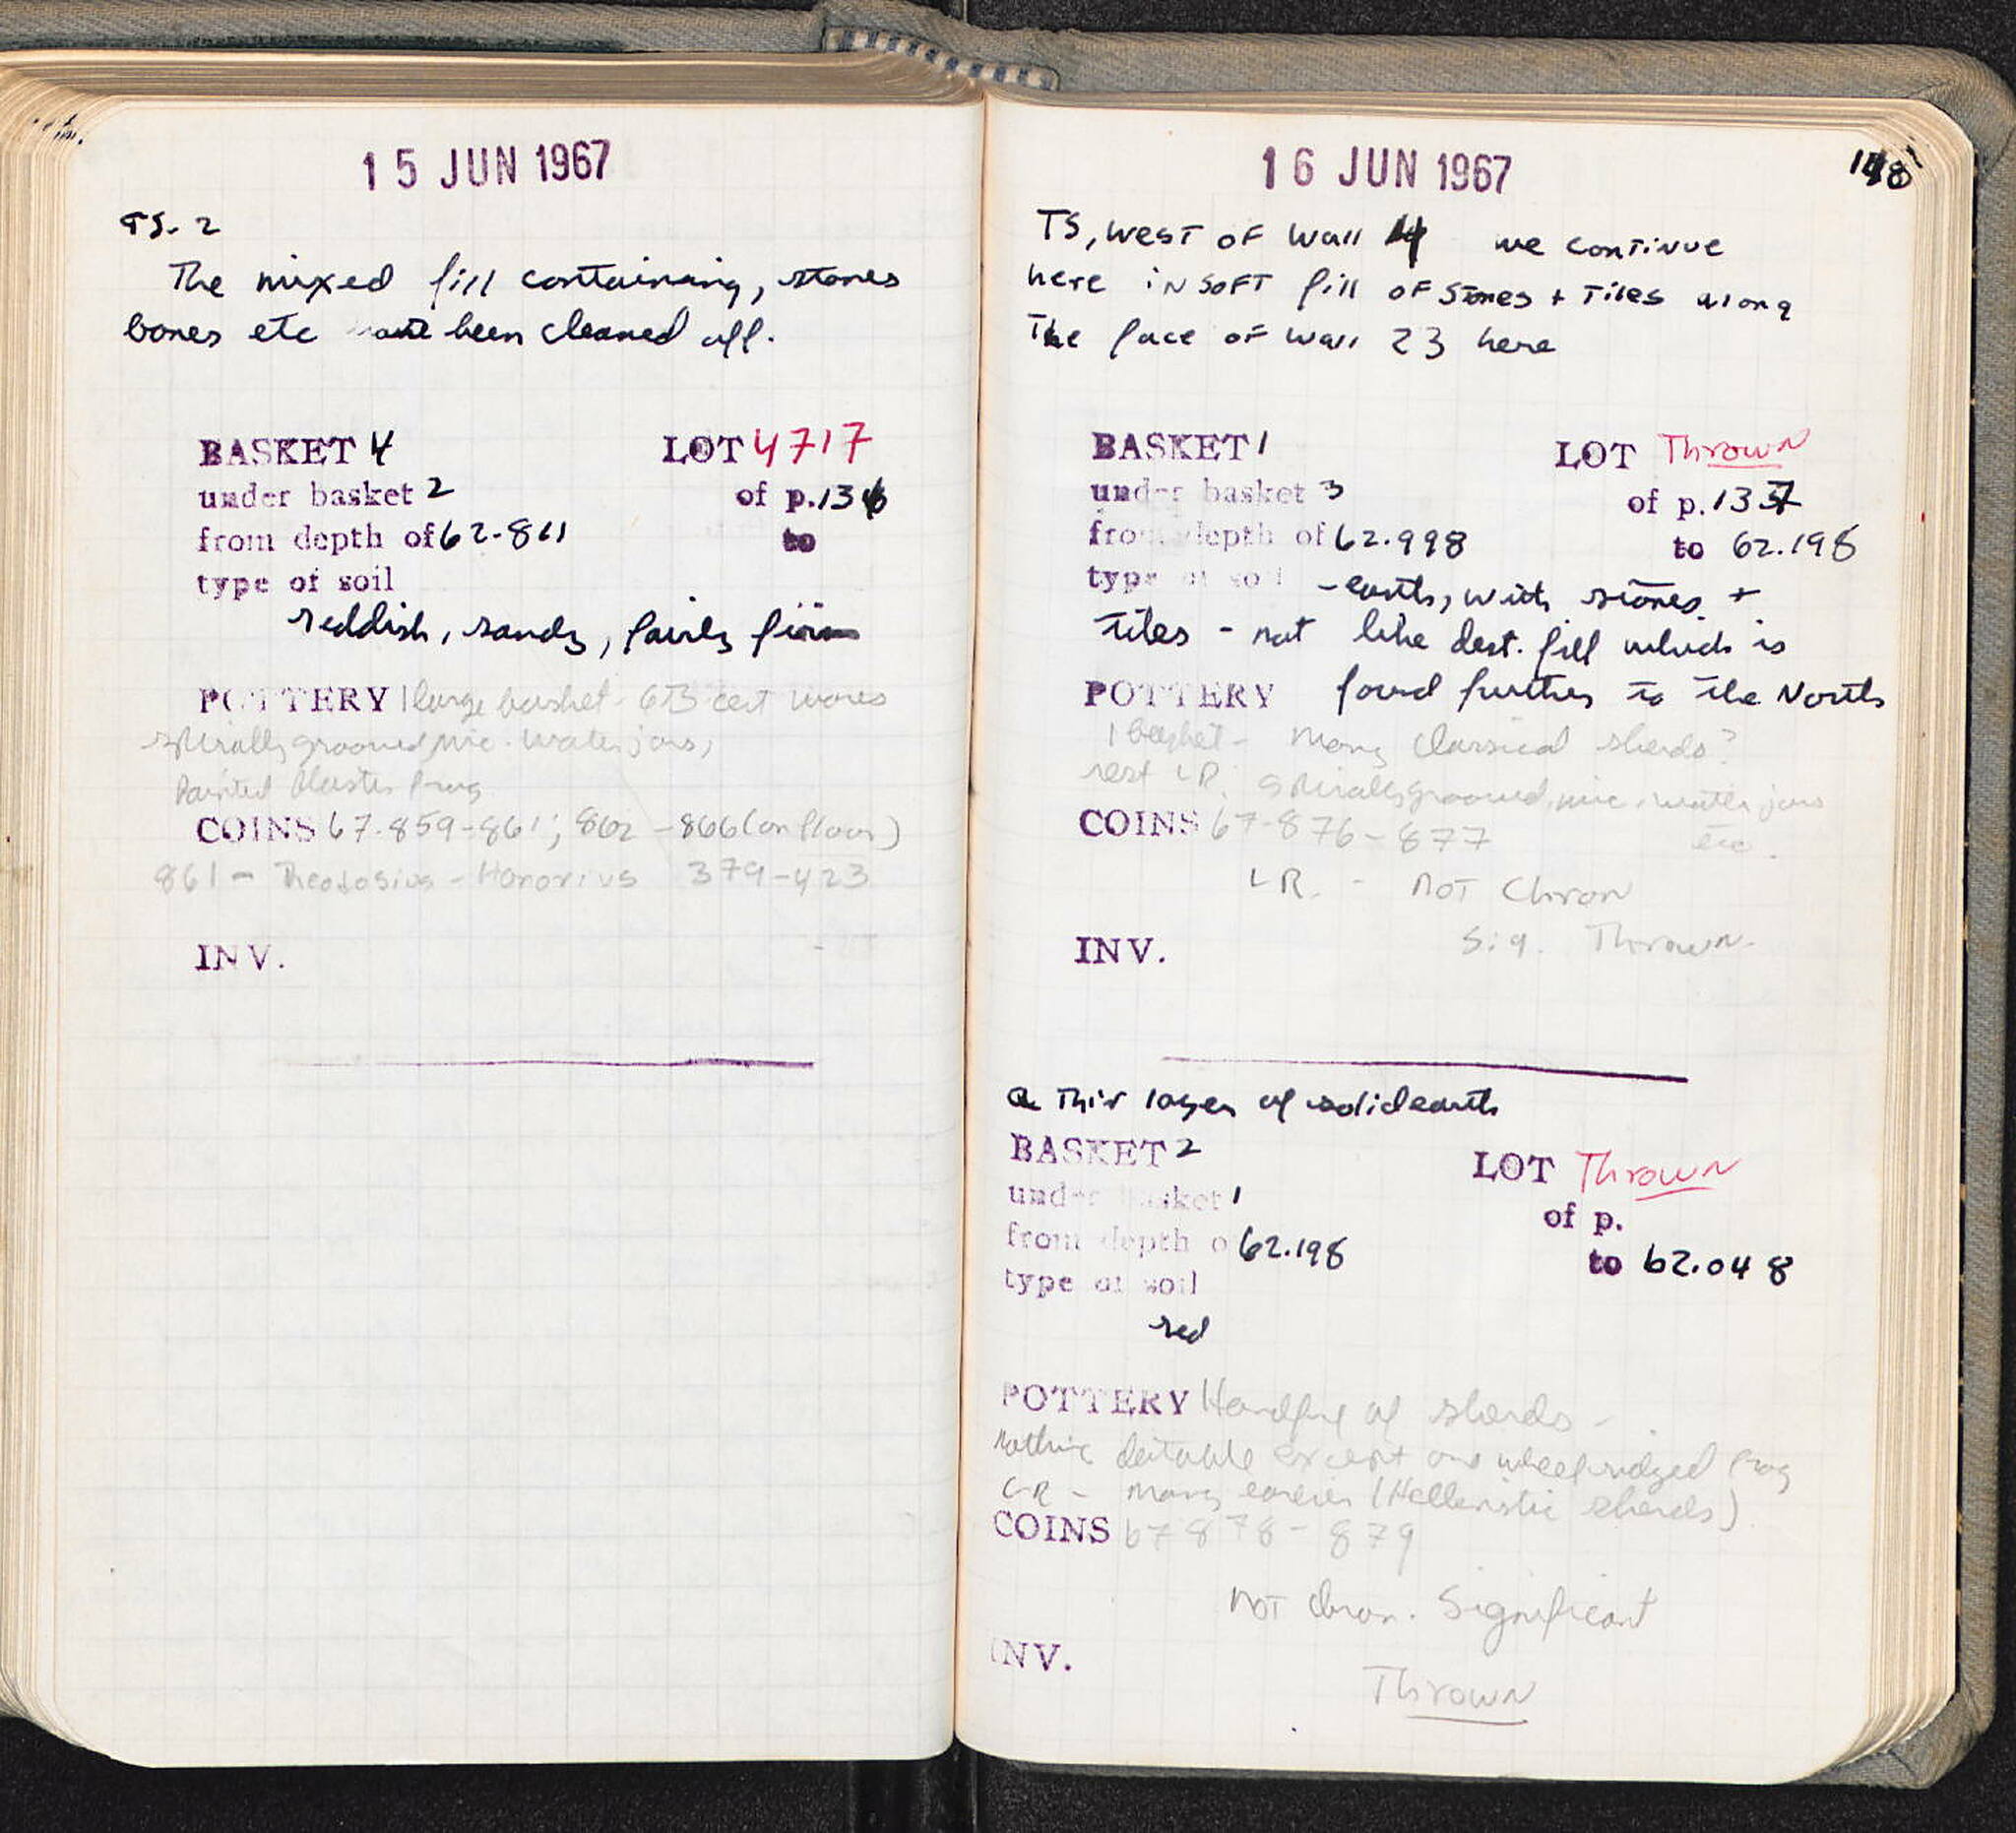 15 JUN 1967
TS. 2
The mixed fill containing, stones
bones etc have been cleaned off.
BASKET 4 LOT 4717
under basket 2 of p.136
from depth of 62.811 to
type of soil
reddish, sandy, fairly firm
POTTERY 1 large basket - 6th cent wares
spirally grooved mic. water jars,
Painted Plaster frag
COINS 67-859-861; 862-866 (on floor)
861 - Theodosius - Honorius 379-423
INV.
16 JUN 1967
148
TS, west of Wall 14 we continue
here in soft fill of stones + Tiles along
The face of Wall 23 here
BASKET 1 LOT Thrown
under basket 3 of p.137
from depth of 62.998 to 62.198
type of soil - earth, with stones +
tiles - not like dest. fill which is
POTTERY found further to the North
1 basket - many classical sherds?
rest LR. spirally grooved, mic. water jars
COINS 67-876-877 etc.
LR. - Not Chron
Sig. Thrown.
INV.
a Thin layer of solid earth
BASKET 2 LOT Thrown
under basket 1 of p.
from depth o 62.198 to 62.048
type of soil
red
POTTERY Handful of sherds -
Nothing datable except one wheel ridged frag
LR - many earlier (Hellenistic sherds)
COINS 67 878-879
Not chron. Significant
INV.
Thrown